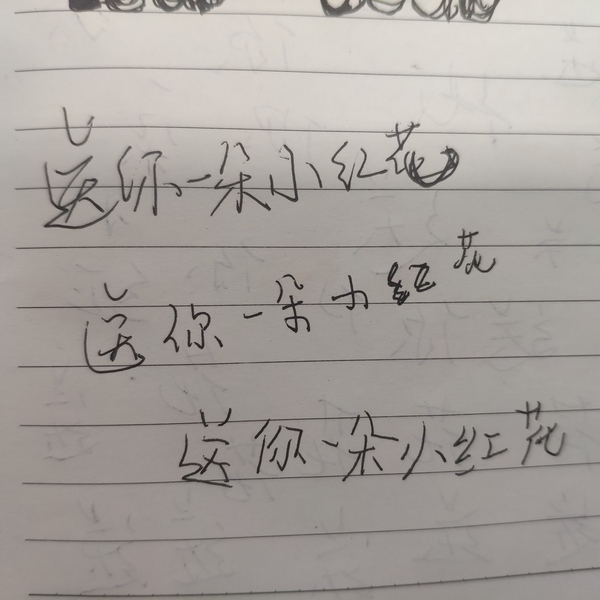 送你一朵小红花
送你一朵小红花
送你一朵小红花